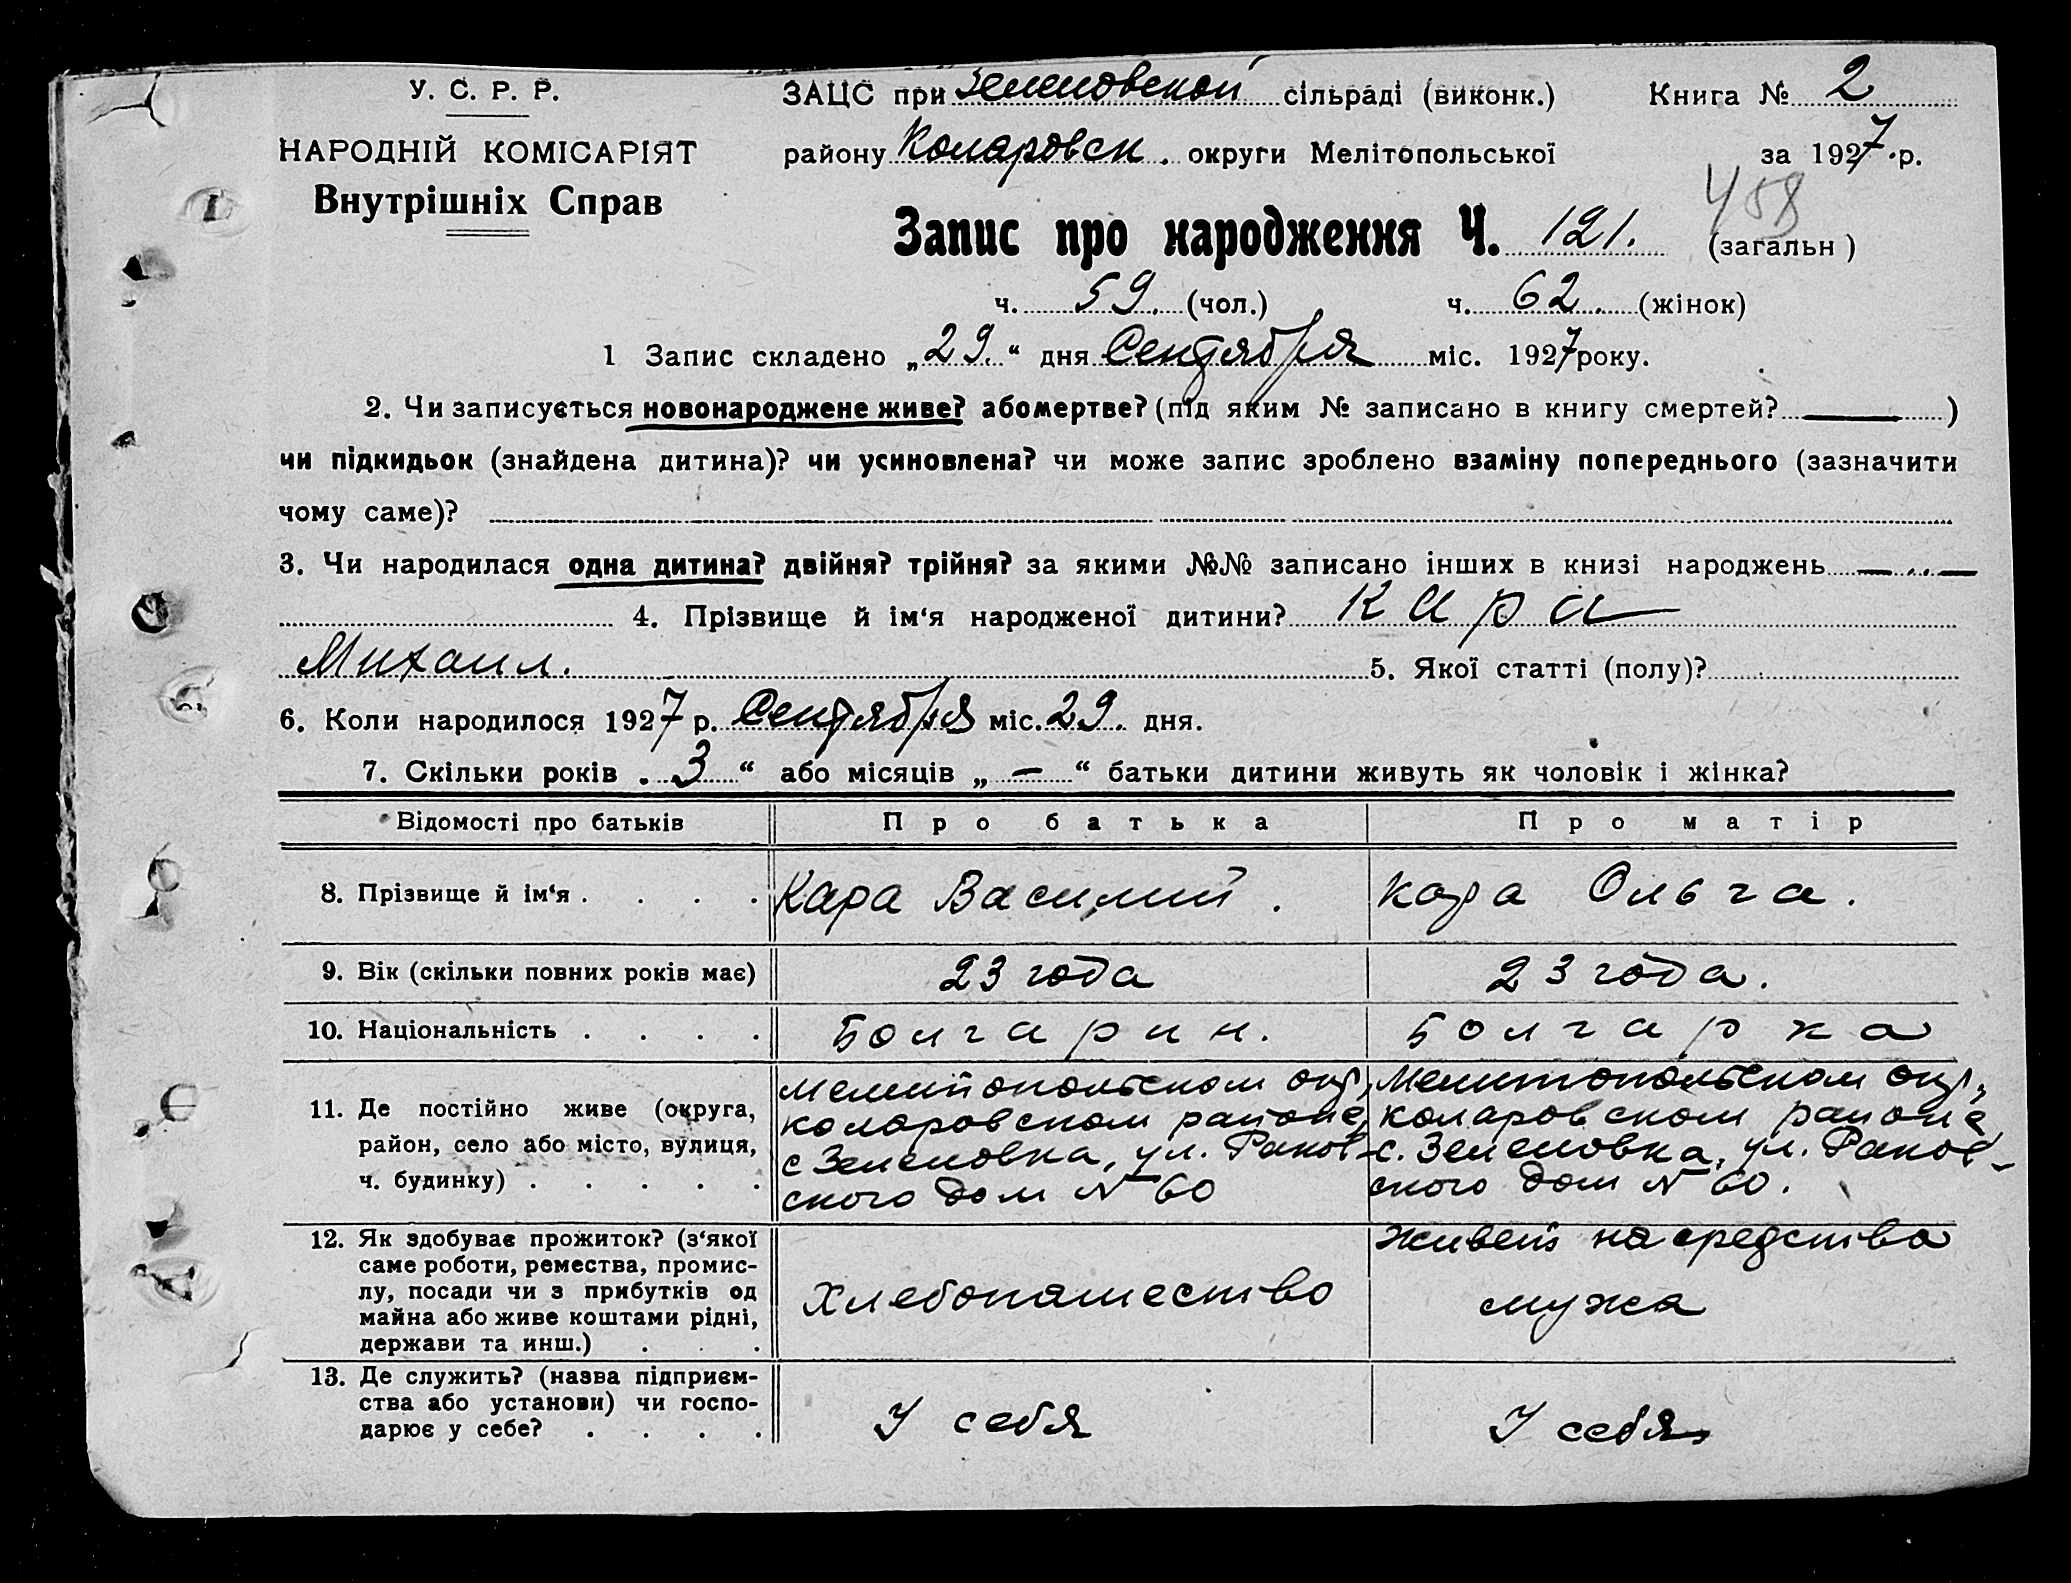 У. С. Р. Р.
НАРОДНІЙ КОМІСАРІЯТ
Внутрішніх Справ
ЗАЦС при Зеленовской сільраді (виконк.) Книга № 2
району Коларовск. округи Мелітопольської за 1927 р.
458
Запис про народження Ч. 121. (загальн)
ч. 59. (чол.) ч. 62. (жінок)
1 Запис складено „29.“ дня Сентября міс. 1927 року.
2. Чи записується новонароджене живе? або мертве? (під яким № записано в книгу смертей? — )
чи підкидьок (знайдена дитина)? чи усиновлена? чи може запис зроблено взаміну попереднього (зазначити
чому саме)?
3. Чи народилася одна дитина? двійня? трійня? за якими №№ записано інших в книзі народжень — . . —
4. Прізвище й ім‘я народженої дитини? Кара
Михаил. 5. Якої статті (полу)?
6. Коли народилося 1927 р. Сентября міс. 29. дня.
7. Скільки років „ 3 “ або місяців „ — “ батьки дитини живуть як чоловік і жінка?
Відомості про батьків Про батька Про матір
8. Прізвище й ім‘я . . . . Кара Василий . Кара Ольга .
9. Вік (скільки повних років має) 23 года 23 года.
10. Національність . . . . Болгарин. Болгарка
11. Де постійно живе (округа,
район, село або місто, вулиця,
ч. будинку) . . . . .
Мелитопольском окр,
коларовском районе,
с Зеленовка, ул. Раков-
ского дом № 60
Мелитопольском окр,
коларовском районе
с. Зеленовка, ул. Раков-
ского дом № 60.
12. Як здобуває прожиток? (з‘якої
саме роботи, ремества, промис-
лу, посади чи з прибутків од
майна або живе коштами рідні,
держави та инш.) . . .
Хлебопашество
Живет на средства
мужа
13. Де служить? (назва підприєм-
ства або установи) чи госпо-
дарює у себе? . . . .
У себя
У себя